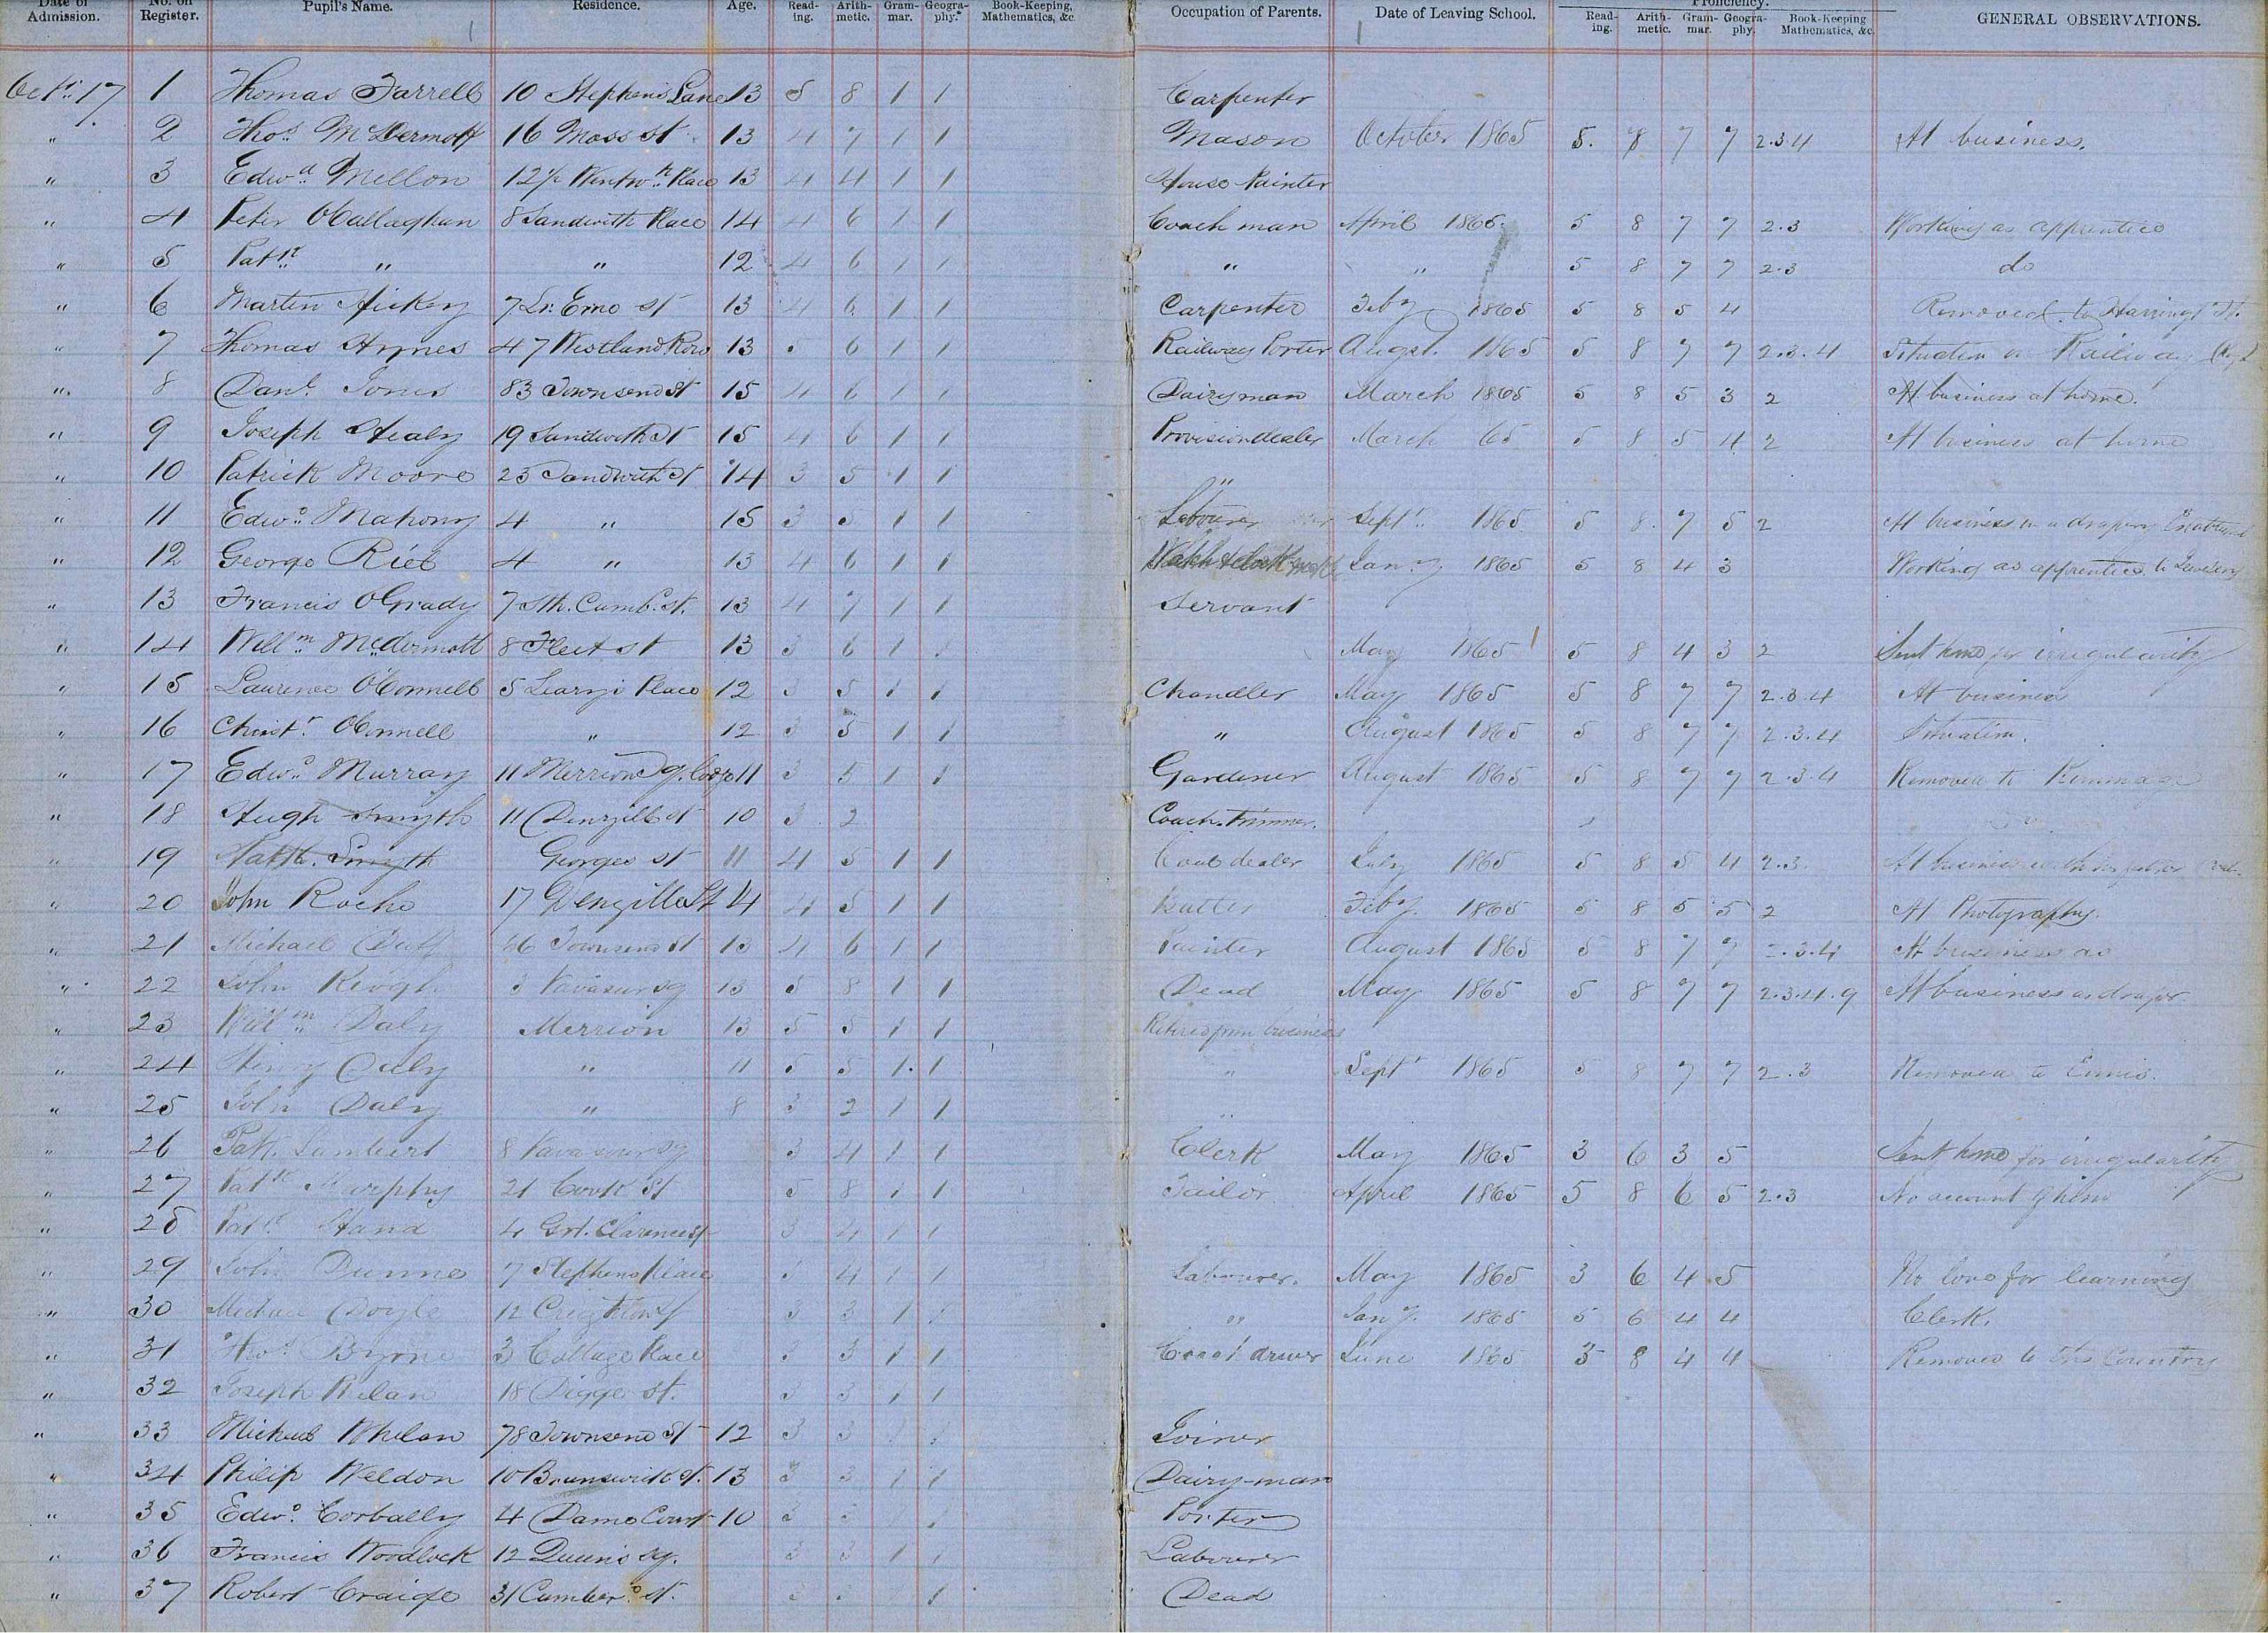 Date of Admission. No. on Register. Pupil's Name. Residence. Age. Read-ing. Arith-metic. Gram-mar. Geogra-phy. Book-Keeping, Mathematics, &c. Occupation of Parents. Date of Leaving School. Proficiency. Read-ing. Arith-metic. Gram-mar. Geogra-phy. Book-Keeping Mathematics, &c. GENERAL OBSERVATIONS.
Octr. 17 1 Thomas Farrell 10 Stephens Lane 13 5 8 1 1 Carpenter
" 2 Thos. McDermott 16 Moss st 13 4 7 1 1 Mason October 1865 5. 8 7 7 2.3 4 At business.
" 3 Edwd. Mellon 12½ Wentwth. Place 13 4 4 1 1 House Painter
" 4 Peter OCallaghan 8 Sandwith Place 14 4 6 1 1 Coach man April 1865. 5 8 7 7 2.3 Working as apprentice
" 5 Patk. " " 12 4 6 1 1 " " 5 8 7 7 2.3 do
" 6 Martin Hickey 7 Lr. Erne st 13 4 6 1 1 Carpenter Feby 1865 5 8 5 4 Removed to
" 7 Thomas Hynes 47 Westland Row 13 5 6 1 1 Railway Porter Augst. 1865 5 8 7 7 2.3.4 Situation on Railway
" 8 Danl. Jones 83 Townsend St 15 4 6 1 1 Dairyman March 1865 5 8 5 3 2 At business at home.
" 9 Joseph Healy 19 Sandwith St 15 4 6 1 1 Provision dealer March 65 5 8 5 4 2 At business at home
" 10 Patrick Moore 23 Sandwith St 14 3 5 1 1 "
" 11 Edwd. Mahony 4 " 15 3 5 1 1 Labourer Septr. 1865 5 8. 7 5 2 At business in a drapery
" 12 George Riel 4 " 13 4 6 1 1 Watch & clock Jany. 1865 5 8 4 3 Working as apprentice to
" 13 Francis OGrady 7 Sth. Cumb. st. 13 4 7 1 1 Servant
" 14 Willm. McDermott 8 Fleet st 13 3 6 1 May 1865 5 8 4 3 2 Sent home for irregularity
" 15 Laurence O'Connell 5 Leary's Place 12 5 1 1 Chandler May 1865 5 8 7 7 2.3.4 At business
" 16 Christr. OConnell " 12 3 5 1 1 " August 1865 5 8 7 7 2.3.4 Situation.
" 17 Edwd. Murray 11 Merrion Sq. 11 3 5 1 1 Gardener August 1865 5 8 7 7 2.3.4 Removed to Kimmage
" 18 Hugh Smyth 11 Denzille st 10 3 2 Coach Trimmer.
" 19 Patk. Smyth Georges st 11 4 5 1 1 Coal dealer July 1865 5 8 5 4 2.3. At business with his father
" 20 John Roche 17 Denzille St 14 4 5 1 1 Feby. 1865 5 8 5 5 2 At Photography.
" 21 Michael Duff 66 Townsend st 13 4 6 1 1 Painter August 1865 5 8 7 7 2.3.4 At business as
" 22 John Keogh 3 Vavasur sq 13 5 8 1 1 Dead May 1865 5 8 7 7 2.3.4.9 At business as draper
" 23 Willm Daly Merrion 13 5 5 1 1 Retired from business
" 24 Henry Daly " 11 5 5 1. 1 " Septr 1865 5 8 7 7 2.3 Removed to Ennis.
" 25 John Daly " 8 3 2 1 1 "
" 26 Patk. Lambert 8 Vavasour sq 3 4 1 1 Clerk May 1865 3 6 3 5 Sent home for irregularity
" 27 Patk Murphy 21 Cook St 5 8 1 1 Tailor April 1865 5 8 6 5 2.3 No account of him
" 28 Patk. Hand 4 Grt. Clarence st 3 4 1 1
" 29 John Dunne 7 Stephens Place 3 4 1 1 Labourer. May 1865 3 6 4 5 No love for learning
" 30 Michael Doyle 12 Creighton st 3 3 1 1 " Jany. 1865 5 6 4 4 Clerk.
" 31 Thos. Byrne 3 Cottage Place 3 3 1 1 driver June 1865 3 8 4 4 Removed to the Country
" 32 Joseph 18 Digges st. 3 3 1 1
" 33 Michael Whelan 78 Townsend St 12 3 3 1 1 Joiner
" 34 Philip Weldon 10 Brunswick st. 13 3 3 1 1 Dairy-man
" 35 Edwd. Corbally 4 Dame Court 10 3 1 Porter
" 36 Francis Woodlock 12 Queen's sq. 3 3 1 1 Labourer
" 37 Robert Craige 31 Cumberd. st. 1 Dead